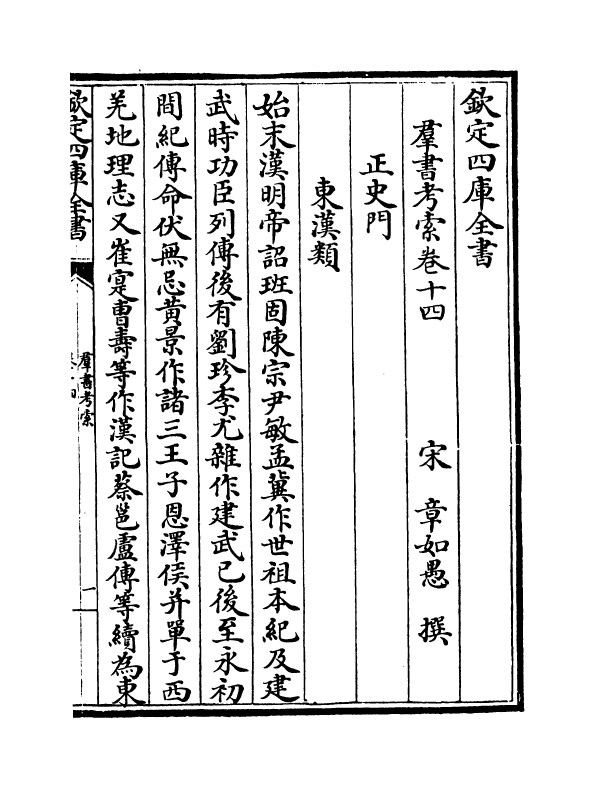 欽定四庫全書
羣書考索卷十四
宋 章如愚 撰
正史門
東漢類
始末漢明帝詔班固陳宗尹敏孟冀作世祖本紀及建
武時功臣列傳後有劉珍李尤雜作建武已後至永初
間紀傳命伏無忌黄景作諸三王子恩澤侯并單于西
羌地理志又崔寔曹壽等作漢記蔡邕盧傳等續為東
欽定四庫全書
羣書考索
一